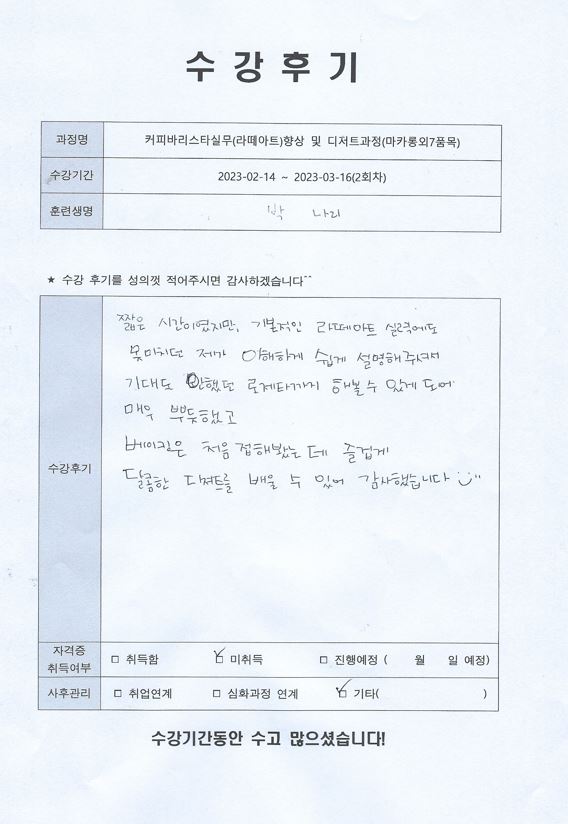 수강후기
과정명 커피바리스타실무(라떼아트)향상 및 디저트과정(마카롱외7품목)
수강기간 2023-02-14 ~ 2023-03-16(2회차)
훈련생명 박 나리
★ 수강 후기를 성의껏 적어주시면 감사하겠습니다^^
수강후기
짧은 시간이였지만, 기본적인 라떼아트 실력에도
못미치던 제가 이해하게 쉽게 설명해주셔서
기대도 안했던 로제타까지 해볼수 있게 되어
매우 뿌듯했고
베이킹은 처음 접해봤는데 즐겁게
달콤한 디져트를 배울 수 있어 감사했습니다
자격증
취득여부
□ 취득함 ☑ 미취득 □ 진행예정 ( 월 일 예정)
사후관리 □ 취업연계 □ 심화과정 연계 ☑ 기타( )
수강기간동안 수고 많으셨습니다!